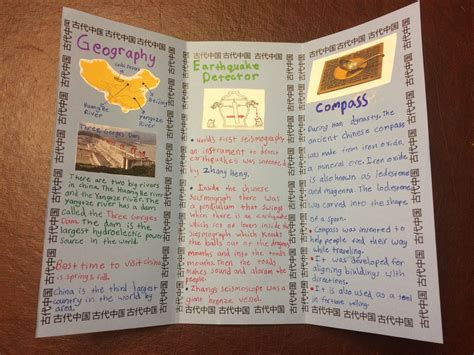 古代中国 古代中国 古代中国 古代中国 古代中国
Geography
Gobi Desert
Beijing
HuangHe
River
Yangtze
River
Three Gorges Dam
There are two big rivers
in china. The Huang He River
and the Yangtze River. The
yangtze river has a dam
called the Three Gorges
Dam. The dam is the
largest hydroelectric power
source in the world.
Best time to visit china
is spring & fall.
China is the third largest
country in the world by
area.
Earthquake
Detector
World's first seismograph,
an instrument to detect
earthquakes was invented
by Zhang Heng.
Inside the chinese
seismograph there was
a pendulum that swings
when there is an earthquake
which knocks
the balls out of the dragons
mouths and into the toads
mouths. Then the toads
makes sound and alarms the
people.
Zhang's seismoscope was a
giant bronze vessel.
Compass
During Han dynasty, the
ancient chinese compass
was made from iron oxide,
a mineral ore. Iron oxide
is also known as lodestone
and magenta. The lodestone
was carved into the shape
of a spoon.
Compass was invented to
help people find their way
while traveling.
It was developed for
aligning buildings with
directions.
It is also used as a tool
in fortune telling.
古代中国 古代中国 古代中国 古代中国